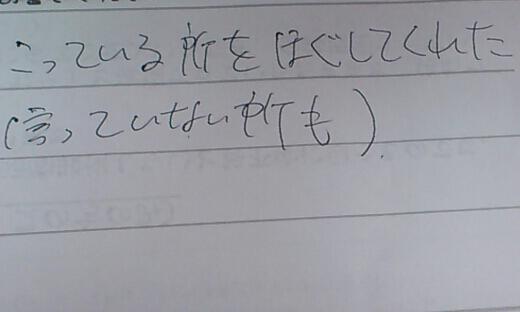 こっている所をほぐしてくれた
(言っていない所も)